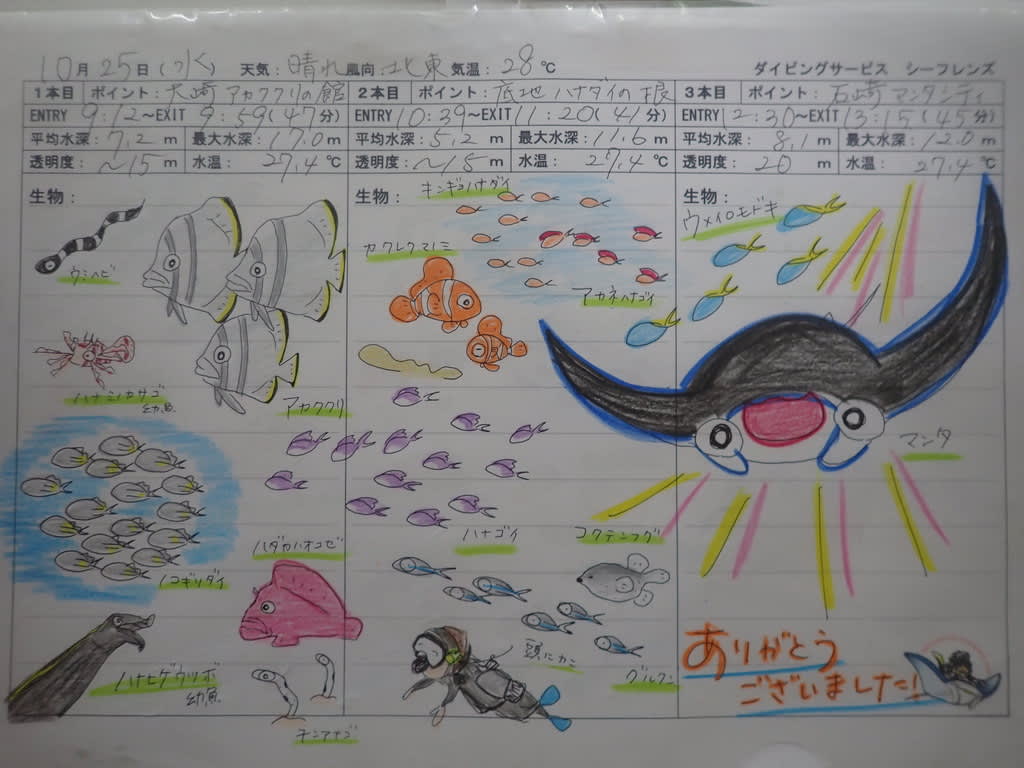 10月25日(水) 天気:晴れ 風向:北東 気温:28℃ ダイビングサービス シーフレンズ
1本目 ポイント:大崎 アカククリの館
ENTRY 9:12~EXIT 9:59(47分)
平均水深:7.2m 最大水深:17.0m
透明度:~15m 水温:27.4℃
生物:
ウミヘビ
ハナミノカサゴ
幼魚
アカククリ
ノコギリダイ
ハダカハオコゼ
ハナヒゲウツボ
幼魚
チンアナゴ
2本目 ポイント:底地 ハナダイの根
ENTRY 10:39~EXIT 11:20(41分)
平均水深:5.2m 最大水深:11.6m
透明度:~15m 水温:27.4℃
生物:
キンギョハナダイ
カクレクマノミ
アカネハナゴイ
ハナゴイ
コクテンフグ
頭にカニ
グルクン
3本目 ポイント:石崎 マンタシティ
ENTRY 12:30~EXIT 13:15(45分)
平均水深:8.1m 最大水深:12.0m
透明度:20m 水温:27.4℃
生物:
ウメイロモドキ
マンタ
ありがとう
ございました!